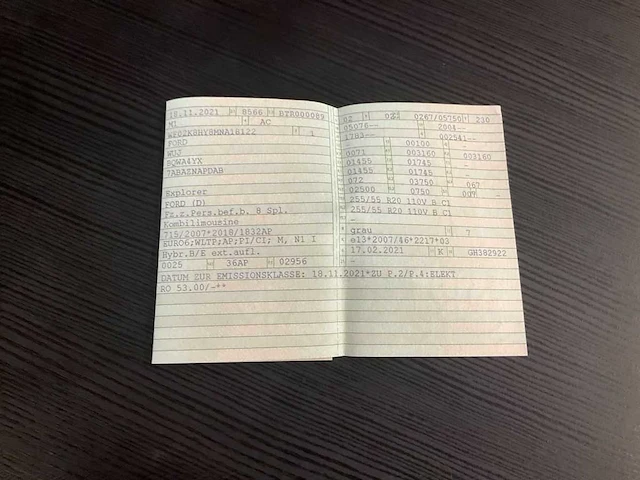 18.11.2021 8566 BTR000089
M1 AC
1
FORD
WUJ
8QWA4YX
7ABAZNAPDAB
Explorer
FORD (D)
Fz.z.Pers.bef.b. 8 Spl.
Kombilimousine
715/2007*2018/1832AP
EURO6;WLTP;AP;PI/CI; M, N1 I
Hybr.B/E ext.aufl.
0025 36AP 02956
DATUM ZUR EMISSIONSKLASSE: 18.11.2021*ZU P.2/P.4:ELEKT
RO 53.00/-**
02 0267/05750 230
05078-- 2004--
1783-- 002541--
- 00100 -
0071 003160 003160
01455 01745 -
01455 01745 -
072 03750 067
02500 0750 007 -
255/55 R20 110V B C1
255/55 R20 110V B C1
-
grau 7
e13*2007/46*2217*03
17.02.2021 K GH382922
-